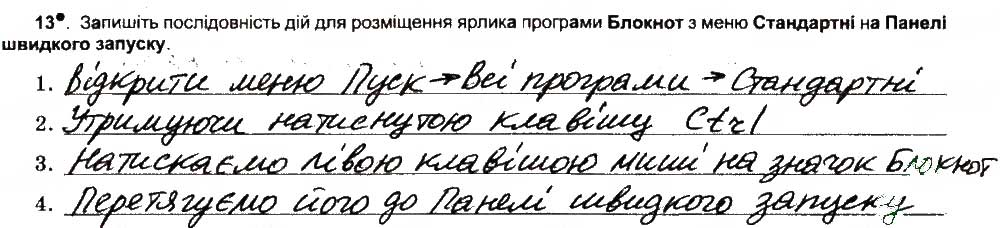 13•. Запишіть послідовність дій для розміщення ярлика програми Блокнот з меню Стандартні на Панелі
швидкого запуску.
1. Відкрити меню Пуск → Всі програми → Стандартні
2. Утримуючи натиснутою клавішу Ctrl
3. Натискаємо лівою клавішою миші на значок Блокнот
4. Перетягуємо його до Панелі швидкого запуску